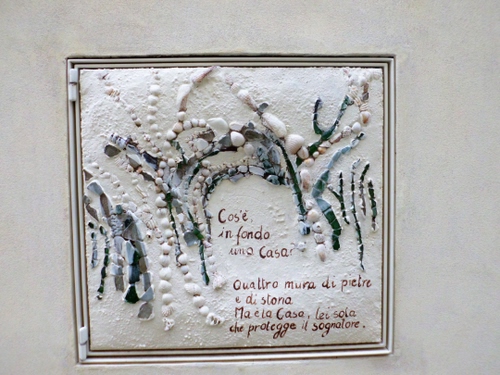 Cos'è,
in fondo
una Casa?
Quattro mura di pietre
e di storia
Ma è la Casa, lei sola
che protegge il sognatore.